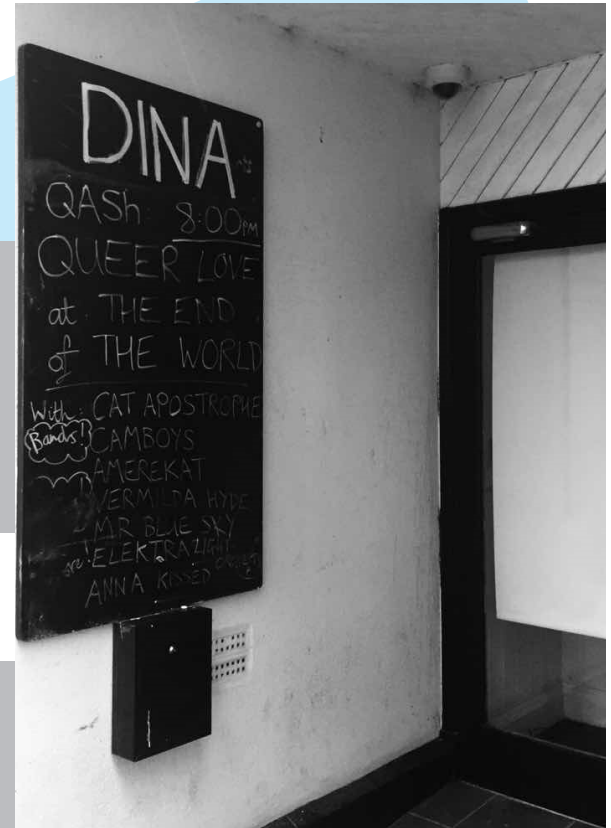 DINA
QASh 8:00PM
QUEER LOVE
at THE END
of THE WORLD
With: CAT APOSTROPHE
Bands! CAMBOYS
AMEREKAT
VERMILDA HYDE
MR BLUE SKY
ELEKTRA
ANNA KISSED